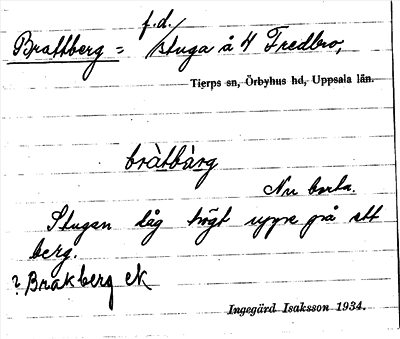 Brattberg = f.d. stuga å 4 Fredbro,
Tierps sn, Örbyhus hd, Uppsala län.
bràtbàrg
Nu borta.
Stugan låg högt uppe på ett
berg.
? Brakberg EK
Ingegärd Isaksson 1934.